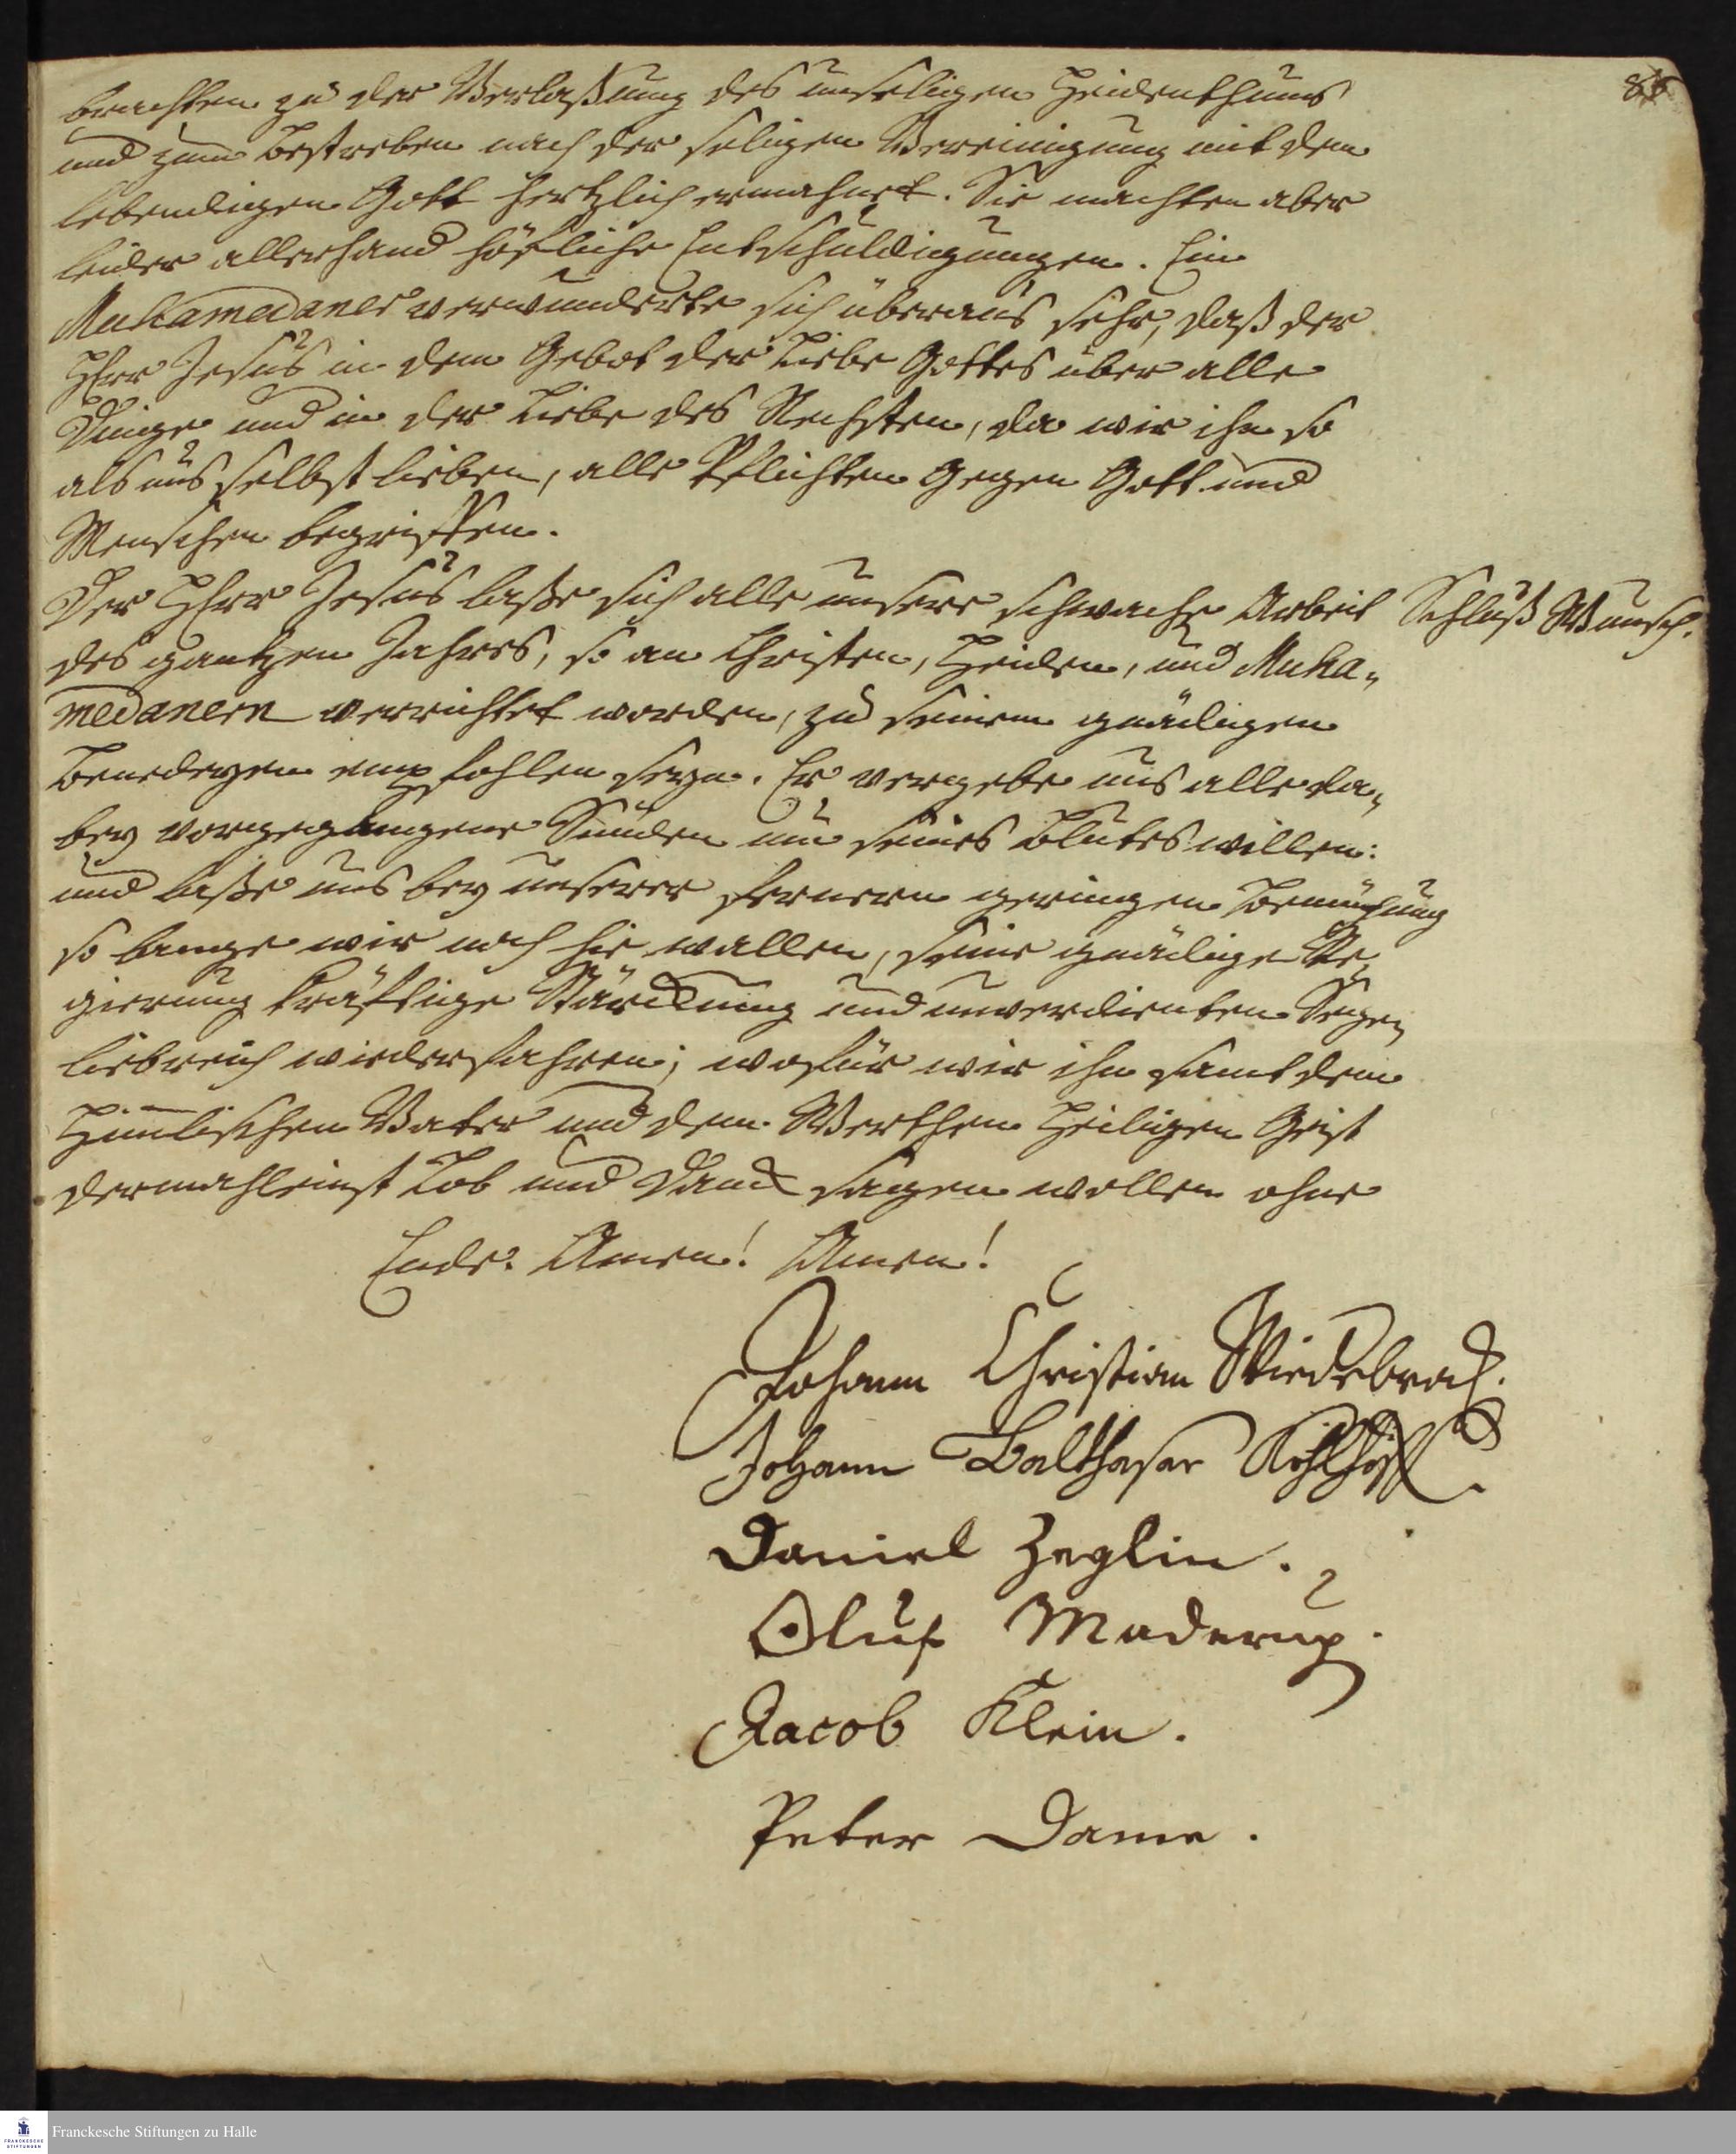 brachten zu der Verlaßung des unseligen Heidenthums
und zum Bestreben nach der seligen Vereinigung mit dem
lebendigen Gott hertzlich ermahnet. Sie machten aber
leider allerhand höfliche Entschuldigungen. Ein
Muhamedaner verwunderte sich überaus sehr, daß der
HErr Jesus in dem Gebot der Liebe Gottes über alle
Dinge und in der Liebe des Nechsten, da wir ihn so
als uns selbst lieben, alle Pflichten gegen Gott und
Menschen begriffen.
Der HErr Jesus laße sich alle unsere schwache Arbeit
Schluß Wunsch.
des gantzen Jahres, so an Christen, Heiden, und Muha-
medanern verrichtet worden, zu seinem gnädigen
Benedeyen empfohlen seyn. Er vergebe uns alle da-
bey vorgegangene Sünden um seines Blutes willen:
und laße uns bey unserer fernern geringen Bemühung
so lange wir noch hie wallen, seine gnädige Re-
gierung kräftige Stärckung und unverdienten Segen
liebreich wiederfahren; wofür wir ihn samt dem
Himlischen Vater und dem Werthen Heiligen Geist
dermahleinst Lob und Danck sagen wollen ohne
Ende. Amen! Amen!
Johann Christian Wiedebrock.
Johann Balthasar Kohlhoff.
Daniel Zeglin.
Oluf Maderup.
Jacob Klein.
Peter Dame.
Franckesche Stiftungen zu Halle
FRANCKESCHE
STIFTUNGEN